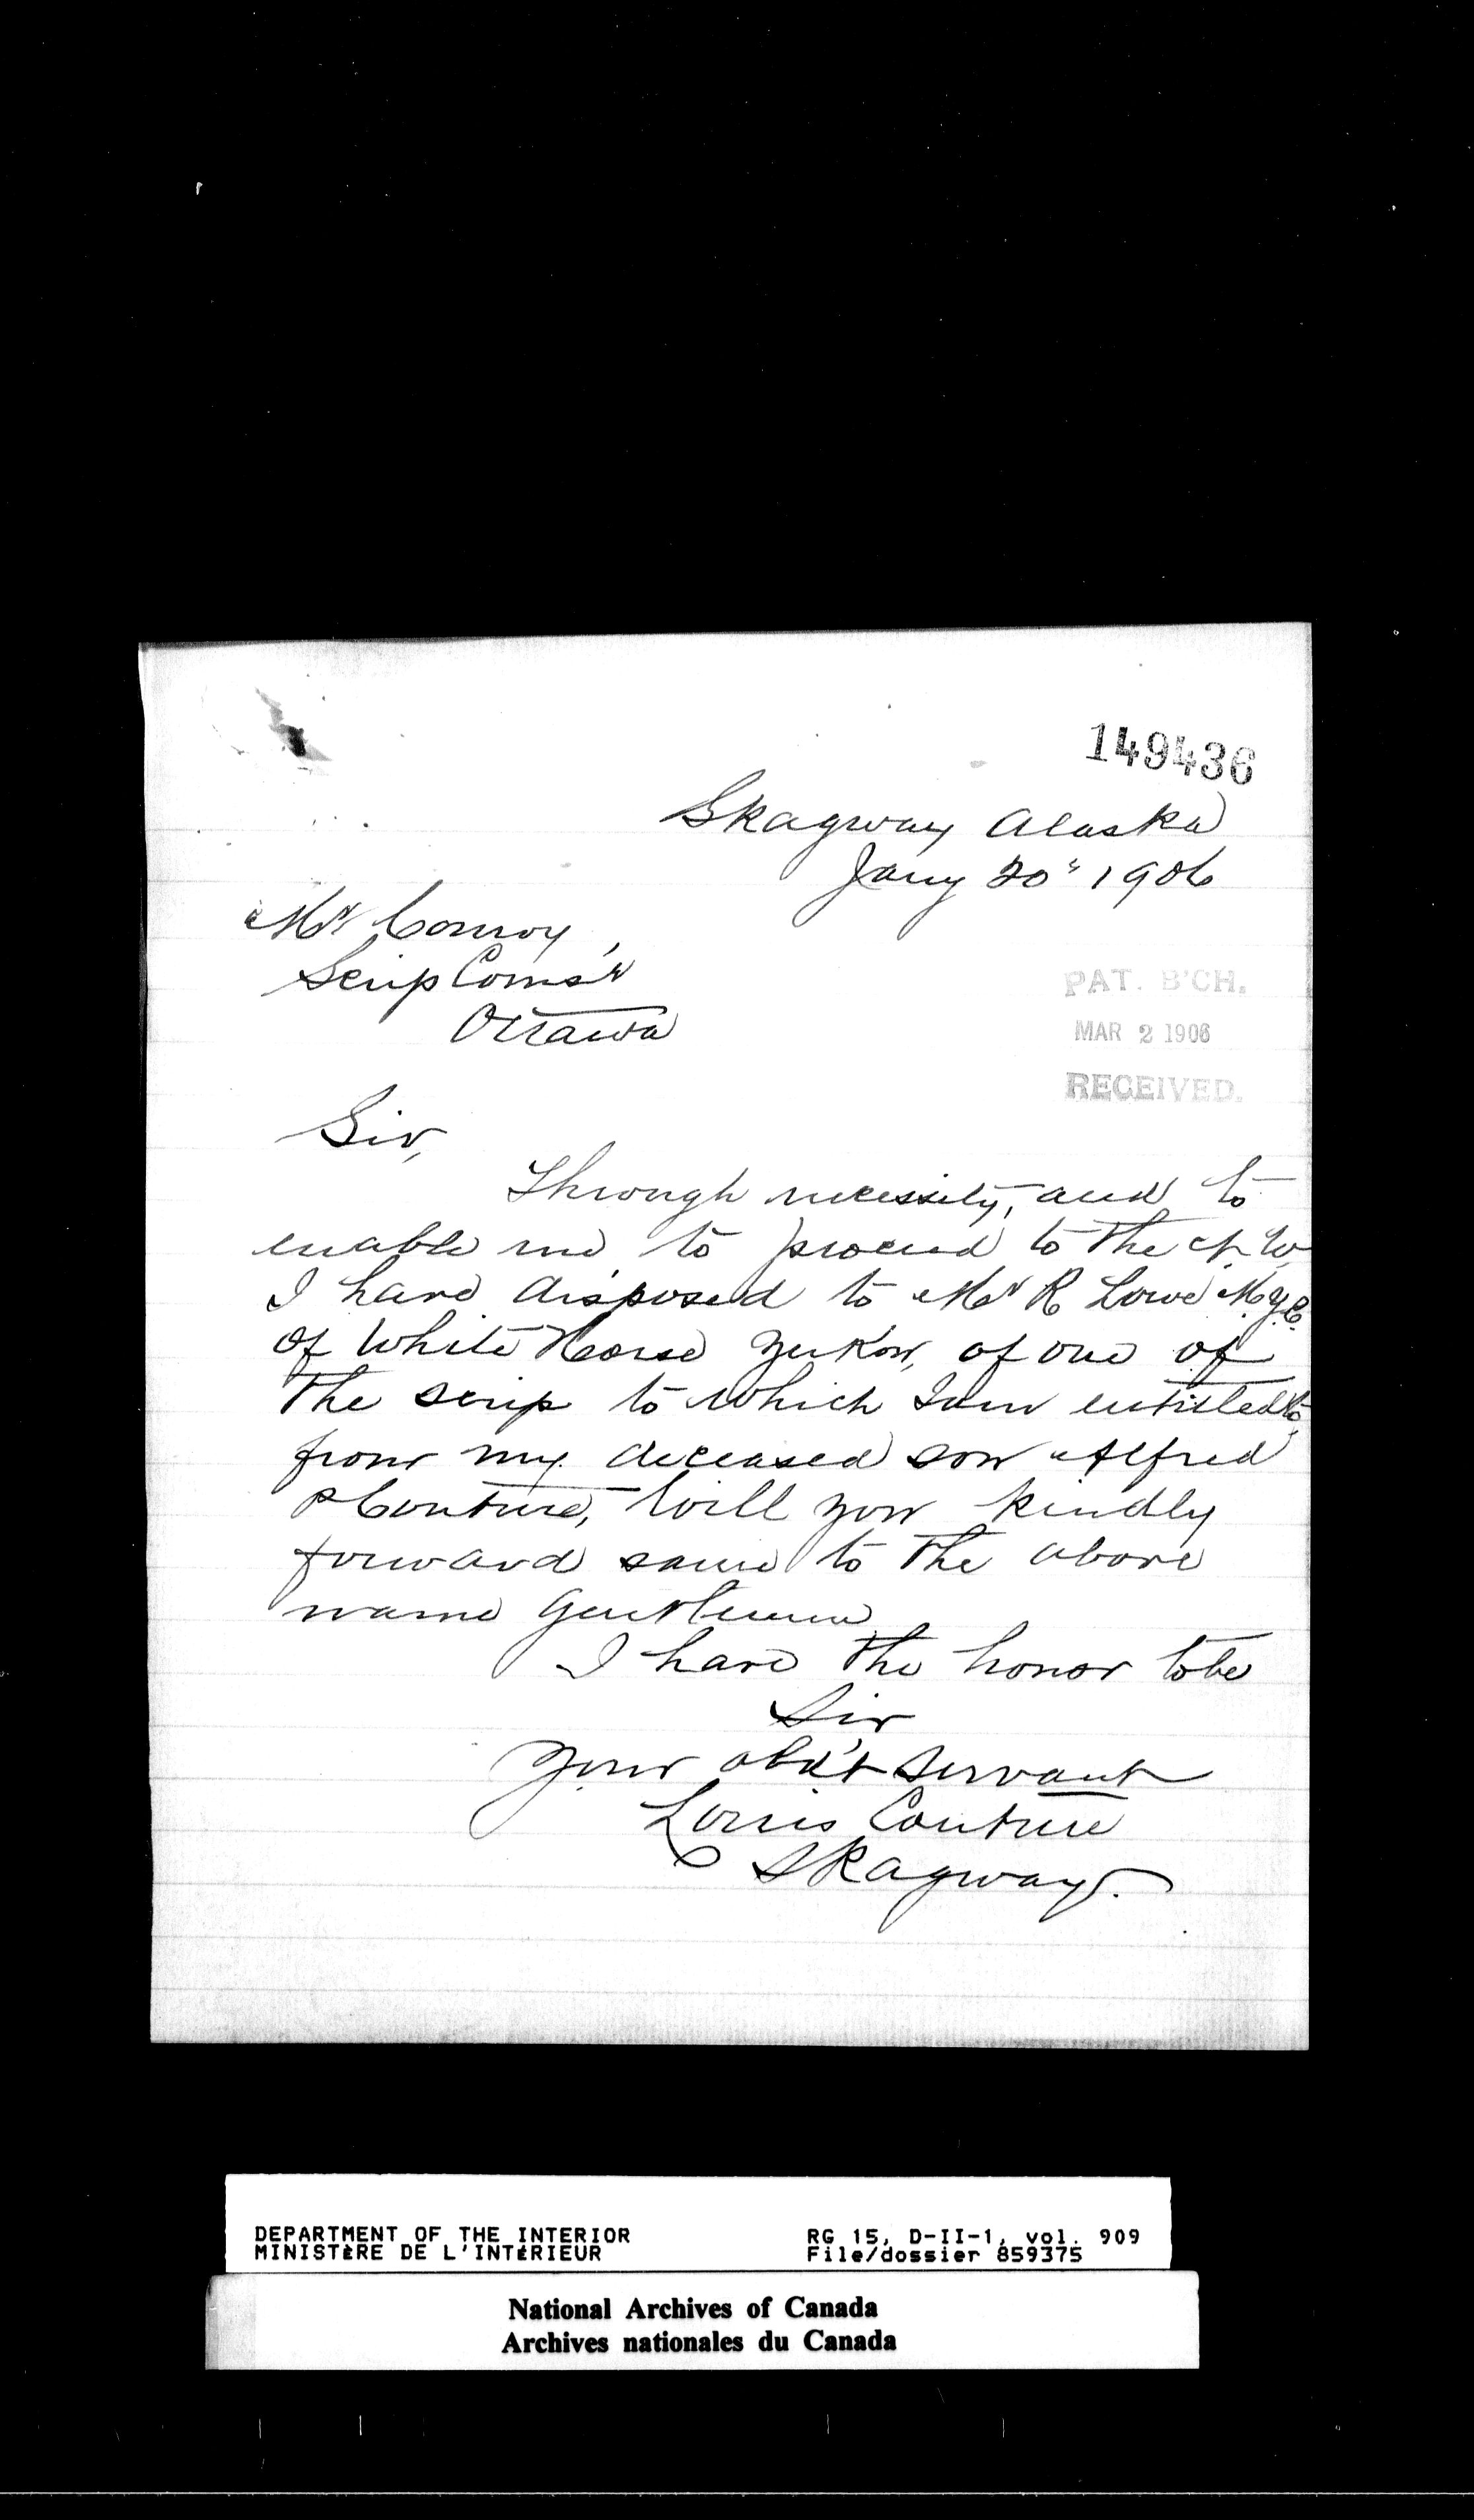 149436
Skagway Alaska
Jany 20" 1906
Mr Conroy,
Scrip Coms'r
Ottawa
PAT. B'CH.
MAR 2 1906
RECEIVED.
Sir,
Through necessity, and to
enable me to proceed to the N. W.
I have disposed to Mr R Lowe M.Y.C.
of White Horse Yukon, of one of
the scrip to which I am entitled to,
from my deceased son Alfred
Couture, Will you kindly
forward same to the above
name Gentleman
I have the honor to be
Sir
Your obd't Servant
Louis Couture
Skagway.
DEPARTMENT OF THE INTERIOR
MINISTÈRE DE L'INTÉRIEUR
RG 15, D-II-1, vol. 909
File/dossier 859375
National Archives of Canada
Archives nationales du Canada